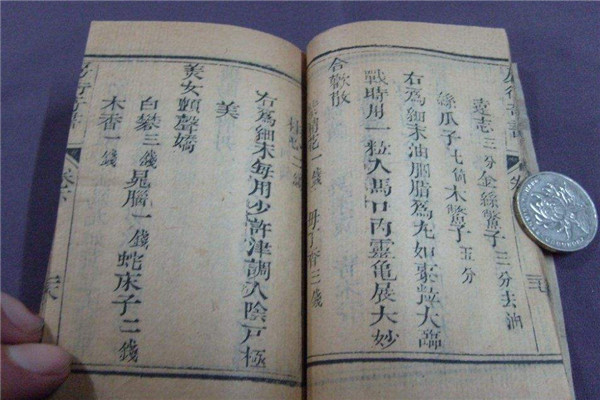 遠志三分金絲鱉子三分去油
絲瓜子七個木鱉子五分
右為細末油胭脂為丸如黍粒大臨
戰時用一粒入馬口內靈龜展大妙
合歡散
花一錢 母丁香三錢
桂心二錢
右為細末每用少許津調入陰戶極
美
美女頻聲嬌
白礬三錢晁腦一錢蛇床子二錢
木香一錢